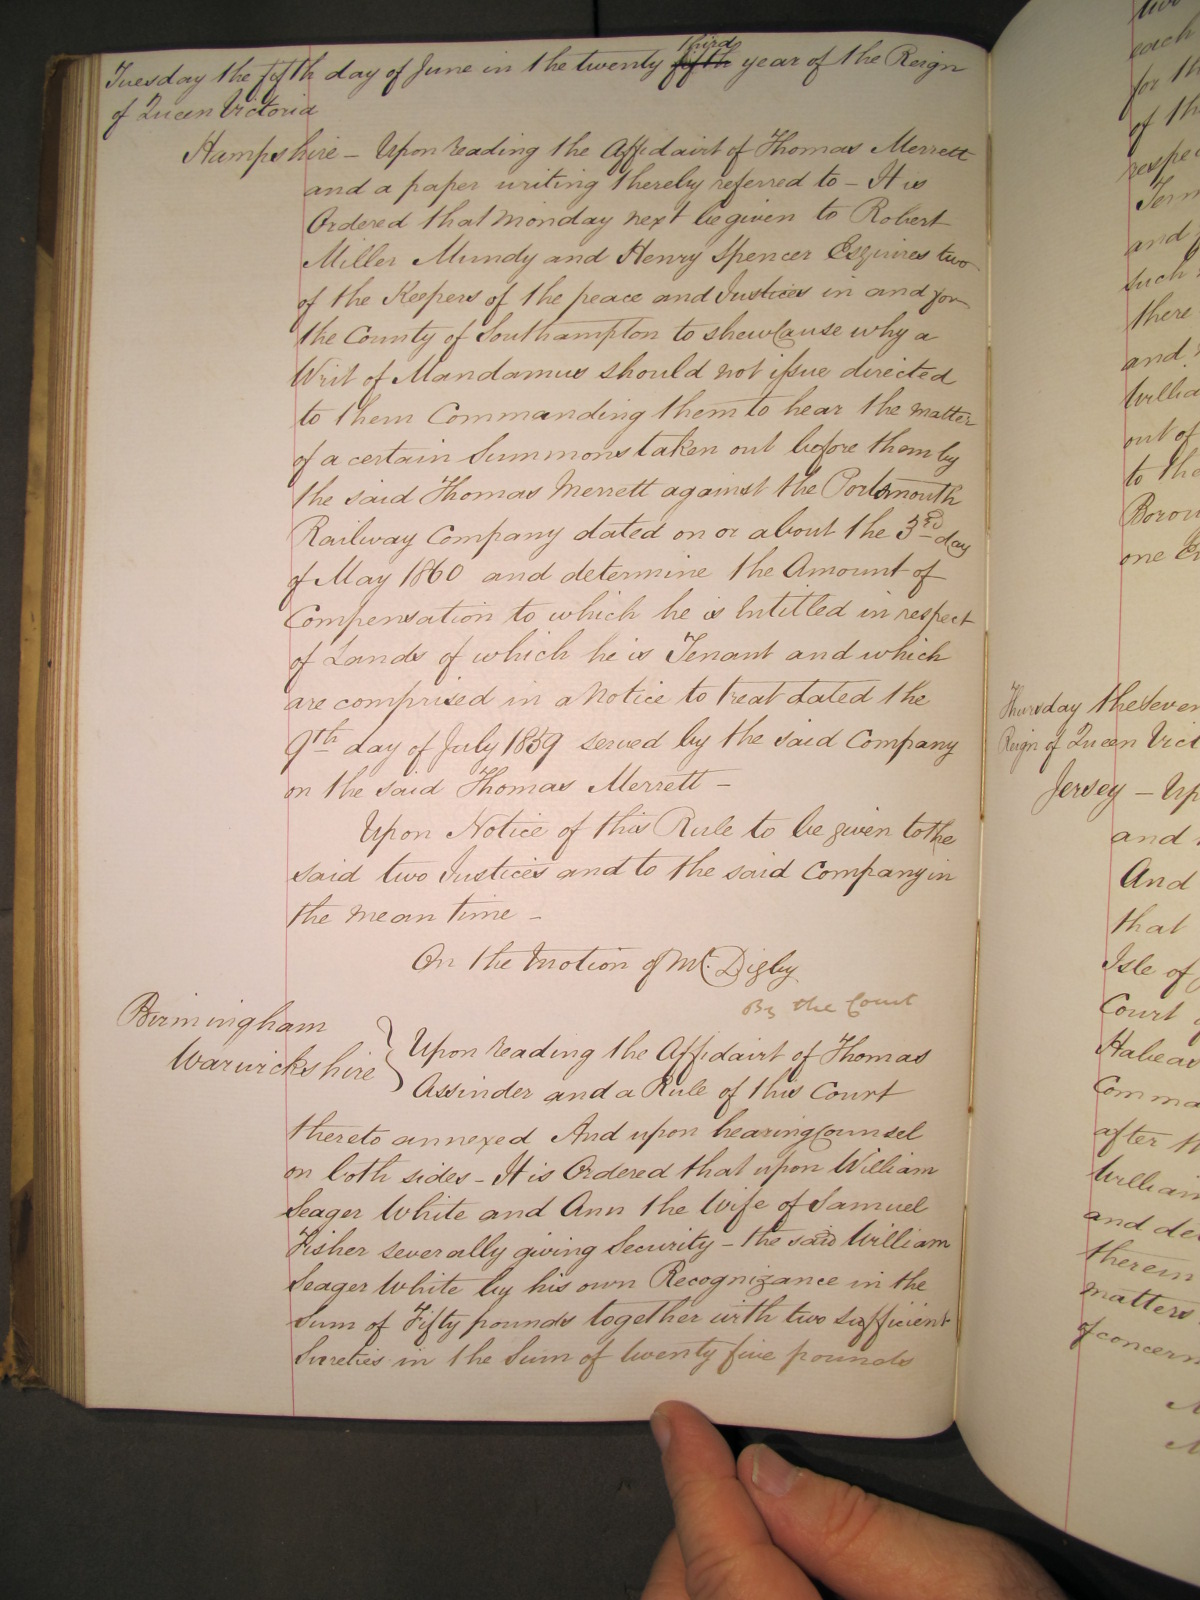 Tuesday the fifth day of June in the twenty third fifth year of the Reign
of Queen Victoria
Hampshire – Upon reading the Affidavit of Thomas Merrett
and a paper writing thereby referred to – It is
Ordered that Monday next be given to Robert
Miller Mundy and Henry Spencer Esquires two
of the Keepers of the peace and Justices in and for
the County of Southampton to shew Cause why a
Writ of Mandamus should not issue directed
to them Commanding them to hear the matter
of a certain Summons taken out before them by
the said Thomas Merrett against the Portsmouth
Railway Company dated on or about the 3rd day
of May 1860 and determine the Amount of
Compensation to which he is Intitled in respect
of Lands of which he is Tenant and which
are comprised in a Notice to treat dated the
9th day of July 1859 served by the said Company
on the said Thomas Merrett –
Upon Notice of this Rule to be given to the
said two Justices and to the said Company in
the mean time –
On the Motion of Mr. Digby
By the Court
Birmingham
Warwickshire
Upon reading the Affidavit of Thomas
Assinder and a Rule of this Court
thereto annexed And upon hearing Counsel
on both sides – It is Ordered that upon William
Seager White and Ann the Wife of Samuel
Fisher severally giving Security – the said William
Seager White by his own Recognizance in the
Sum of Fifty pounds together with two sufficient
Sureties in the Sum of twenty five pounds
each
for th
of th
respec
Term
and
such
there
and
Willia
out of
to the
Borou
one
Thursday the Seven
Reign of Queen Vict
Jersey – Up
and
And
that
Isle of
Court
Habeas
Comma
after th
William
and de
therein
matters
of concern